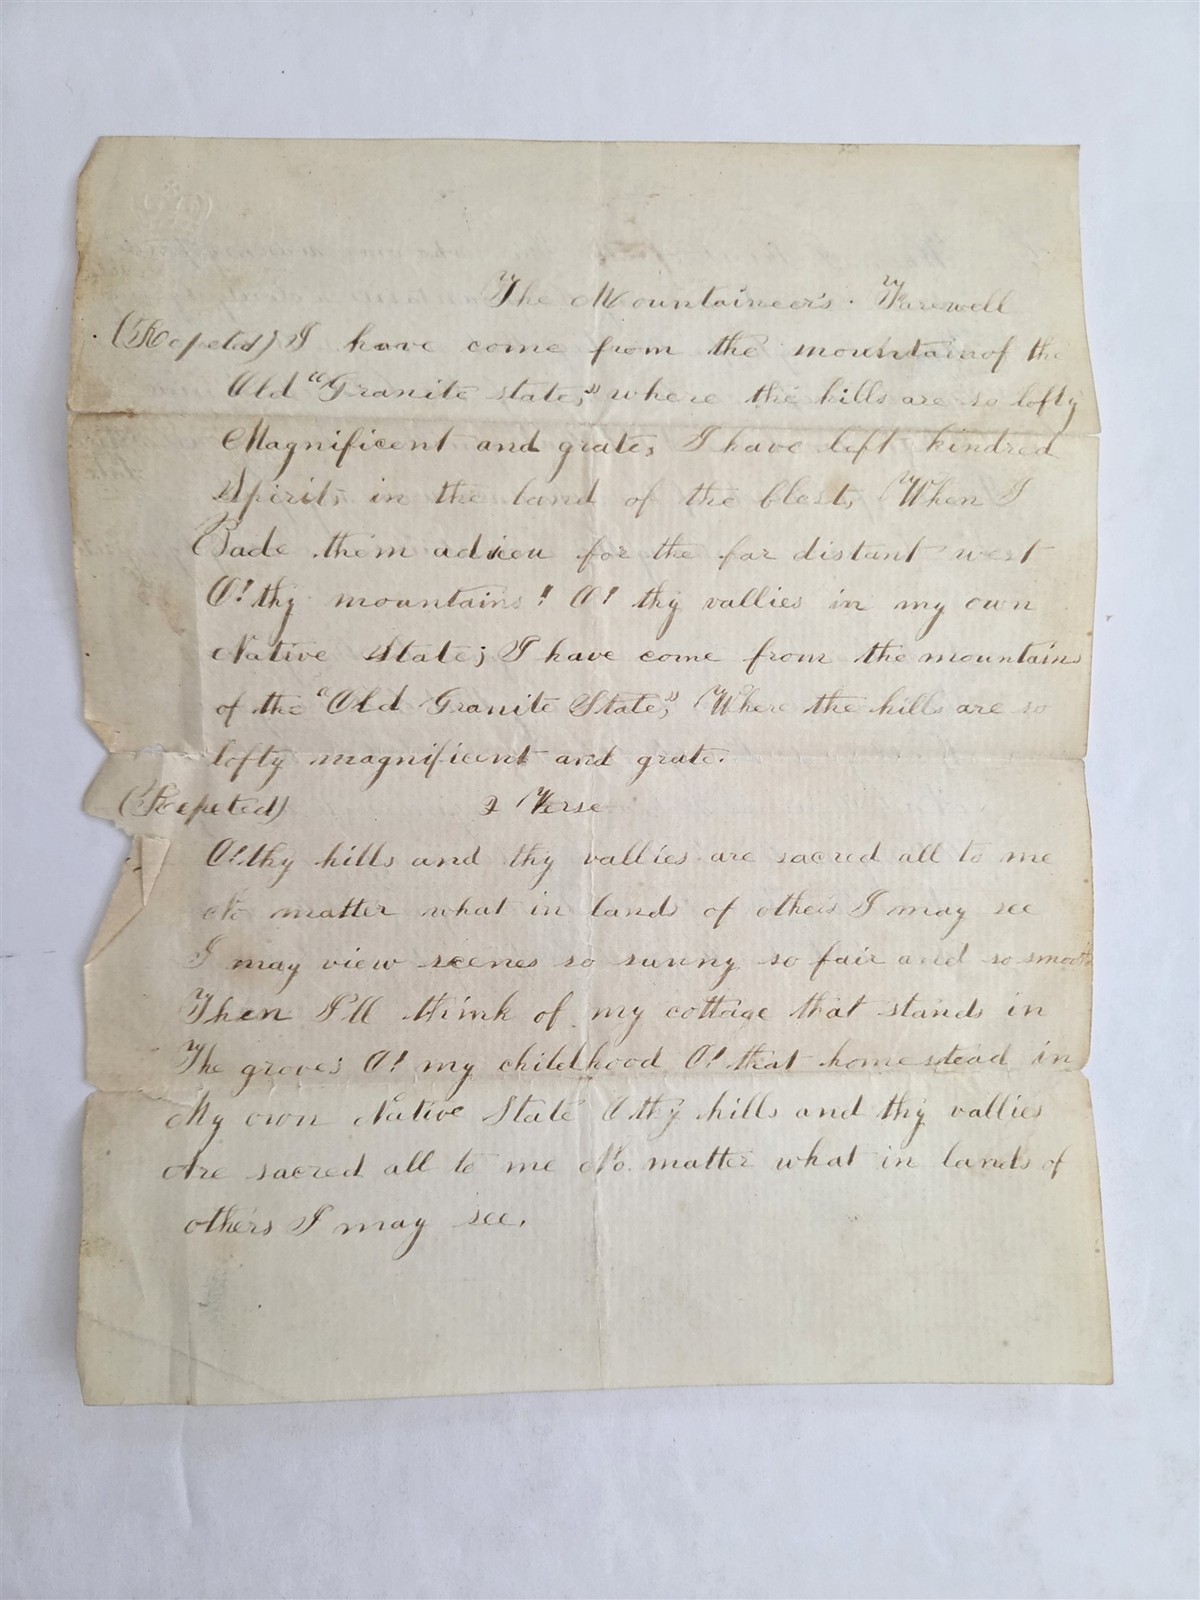 The Mountaineer's. Farewell
(Repeted) I have come from the mountain of the
Old "Granite state," where the hills are so lofty
Magnificent and grate, I have left kindred
Spirits in the land of the blest, When I
Bade them adieu for the far distant west
O! thy mountains! O! thy vallies in my own
Native State; I have come from the mountains
of the "Old Granite State," Where the hills are so
lofty magnificent and grate.
(Repeted) 2 Verse
O! thy hills and thy vallies are sacred all to me
No matter what in lands of others I may see
I may view scenes so sunny so fair and so smooth
Then I'll think of my cottage that stands in
The groves O! my childhood O! that homestead in
My own Native State O thy hills and thy vallies
Are sacred all to me No. matter what in lands of
others I may see.